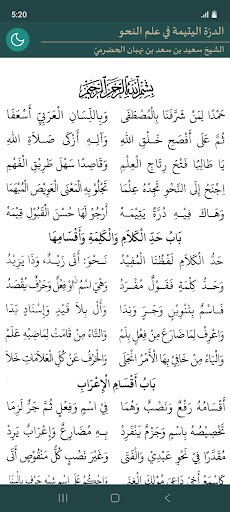 5:20
الدرة اليتيمة في علم النحو
الشيخ سعيد بن سعد بن نبهان الحضرمي
بِسْمِ اللَّهِ الرَّحْمَنِ الرَّحِيمِ
حَمْدًا لِمَنْ شَرَّفَنَا بِالْمُصْطَفَى وَبِاللِّسَانِ الْعَرَبِيِّ أَسْعَفَا
ثُمَّ عَلَى أَفْصَحِ خَلْقِ اللهِ وَآلِهِ أَزْكَى صَلَاةِ اللهِ
يَا طَالِبًا فَتْحَ رِتَاجِ الْعِلْمِ وَقَاصِدًا سَهْلَ طَرِيقِ الْفَهْمِ
اِجْنَحْ إِلَى النَّحْوِ تَجِدْهُ عِلْمَا تَجْلُو بِهِ الْمَعْنَى الْعَوِيصَ الْمُبْهَمَا
وَهَاكَ فِيهِ دُرَّةً يَتِيمَهْ أَرْجُو لَهَا حُسْنَ الْقَبُولِ قِيمَهْ
بَابُ حَدِّ الْكَلَامِ وَالْكَلِمَةِ وَأَقْسَامِهَا
حَدُّ الْكَلَامِ لَفْظُنَا الْمُفِيدُ نَحْوُ: أَتَى زَيْدٌ، وَذَا يَزِيدُ
وَحَدُّ كِلْمَةٍ فَقَوْلٌ مُفْرَدُ وَهْيَ اسْمٌ اوْ فِعْلٌ وَحَرْفٌ يُقْصَدُ
فَاسْمٌ بِتَنْوِينٍ وَجَرٍّ وَنِدَا وَأَلْ بِلَا قَيْدٍ وَإِسْنَادٍ بَدَا
وَاعْرِفْ لِمَا ضَارَعَ مِنْ فِعْلٍ بِلَمْ وَالتَّاءُ مِنْ قَامَتْ لِمَاضِيهِ عَلَمْ
وَالْيَاءُ مِنْ خَافِي بِهَا الْأَمْرُ انْجَلَى وَالْحَرْفُ عَنْ كُلِّ الْعَلَامَاتِ خَلَا
بَابُ أَقْسَامِ الْإِعْرَابِ
أَقْسَامُهُ رَفْعٌ وَنَصْبٌ وَهُمَا فِي اسْمٍ وَفِعْلٍ ثُمَّ جَرٌّ لَزِمَا
تَخْصِيصُهُ بِاسْمٍ وَجَزْمٌ يَنْفَرِدْ بِهِ مُضَارِعٌ وَإِعْرَابٌ يَرِدْ
مُقَدَّرًا فِي نَحْوِ عَبْدِي وَالْفَتَى وَغَيْرُ نَصْبٍ كُلُّ مَنْقُوصٍ أَتَى